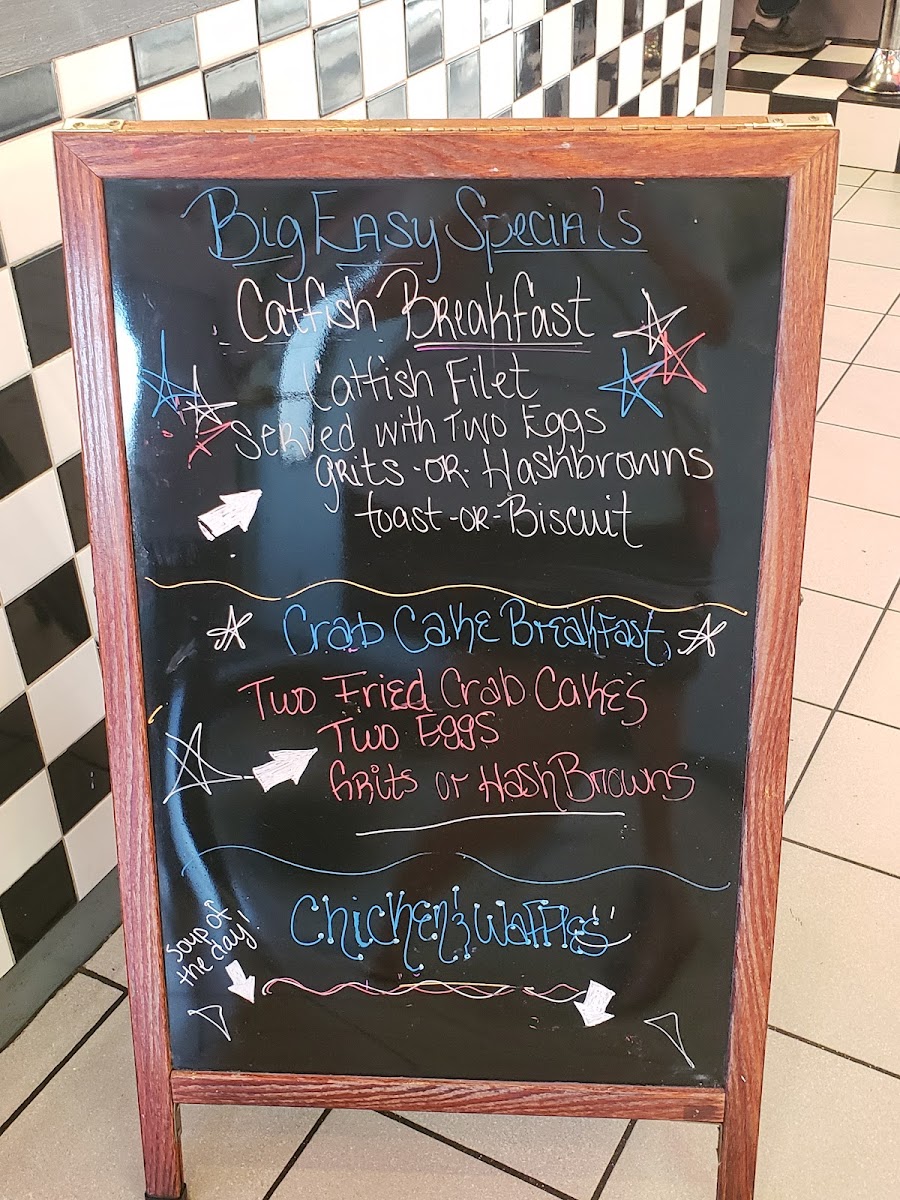 Big Easy Specials
Catfish Breakfast
Catfish Filet
Served with Two Eggs
grits -or- Hashbrowns
toast -or- Biscuit
Crab Cake Breakfast
Two Fried Crab Cakes
Two Eggs
Grits or HashBrowns
Chicken & Waffles
Soup of
the day!